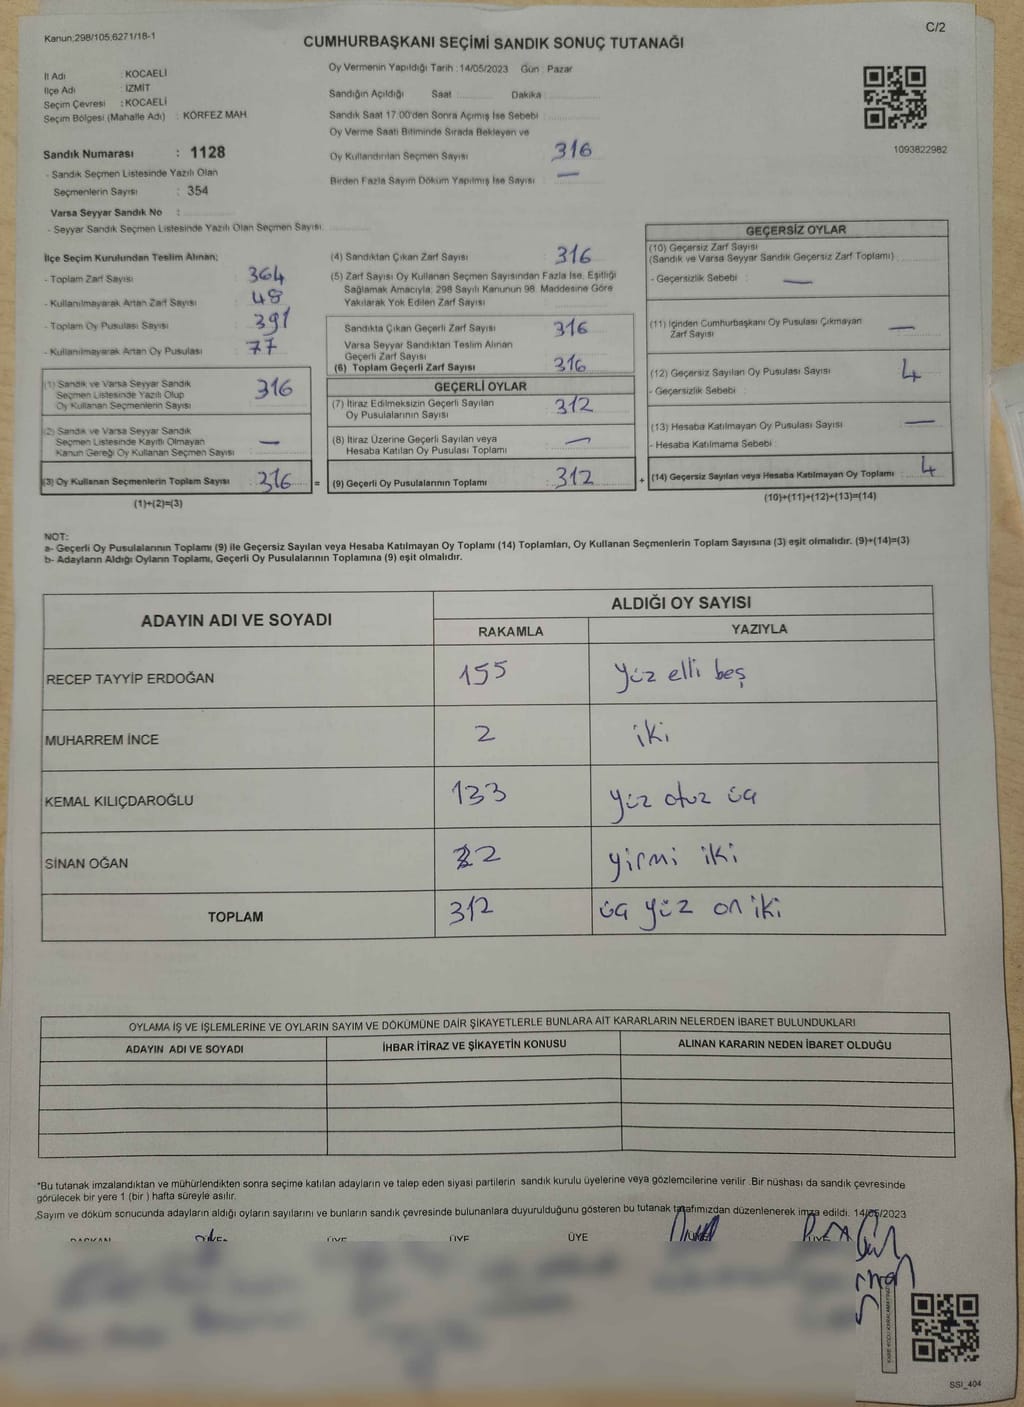 Kanun;298/105,6271/18-1
C/2
CUMHURBAŞKANI SEÇİMİ SANDIK SONUÇ TUTANAĞI
İl Adı : KOCAELİ
İlçe Adı : İZMİT
Seçim Çevresi : KOCAELİ
Seçim Bölgesi (Mahalle Adı) : KÖRFEZ MAH.
Sandık Numarası : 1128
- Sandık Seçmen Listesinde Yazılı Olan
Seçmenlerin Sayısı : 354
Varsa Seyyar Sandık No :
- Seyyar Sandık Seçmen Listesinde Yazılı Olan Seçmen Sayısı:
Oy Vermenin Yapıldığı Tarih : 14/05/2023 Gün : Pazar
Sandığın Açıldığı Saat Dakika
Sandık Saat 17.00'den Sonra Açımış İse Sebebi
Oy Verme Saati Bitiminde Sırada Bekleyen ve
Oy Kullandırılan Seçmen Sayısı : 316
Birden Fazla Sayım Döküm Yapılmış İse Sayısı : —
1093822982
İlçe Seçim Kurulundan Teslim Alınan;
- Toplam Zarf Sayısı : 364
- Kullanılmayarak Artan Zarf Sayısı : 48
- Toplam Oy Pusulası Sayısı : 391
- Kullanılmayarak Artan Oy Pusulası : 77
(1) Sandık ve Varsa Seyyar Sandık
Seçmen Listesinde Yazılı Olup
Oy Kullanan Seçmenlerin Sayısı : 316
(2) Sandık ve Varsa Seyyar Sandık
Seçmen Listesinde Kayıtlı Olmayan
Kanun Gereği Oy Kullanan Seçmen Sayısı : —
(3) Oy Kullanan Seçmenlerin Toplam Sayısı : 316 =
(1)+(2)=(3)
(4) Sandıktan Çıkan Zarf Sayısı : 316
(5) Zarf Sayısı Oy Kullanan Seçmen Sayısından Fazla İse, Eşitliği
Sağlamak Amacıyla; 298 Sayılı Kanunun 98. Maddesine Göre
Yakılarak Yok Edilen Zarf Sayısı :
Sandıkta Çıkan Geçerli Zarf Sayısı : 316
Varsa Seyyar Sandıktan Teslim Alınan
Geçerli Zarf Sayısı
(6) Toplam Geçerli Zarf Sayısı : 316
GEÇERLİ OYLAR
(7) İtiraz Edilmeksizin Geçerli Sayılan
Oy Pusulalarının Sayısı : 312
(8) İtiraz Üzerine Geçerli Sayılan veya
Hesaba Katılan Oy Pusulası Toplamı : —
(9) Geçerli Oy Pusulalarının Toplamı : 312 +
GEÇERSİZ OYLAR
(10) Geçersiz Zarf Sayısı
(Sandık ve Varsa Seyyar Sandık Geçersiz Zarf Toplamı)
- Geçersizlik Sebebi : —
(11) İçinden Cumhurbaşkanı Oy Pusulası Çıkmayan
Zarf Sayısı —
(12) Geçersiz Sayılan Oy Pusulası Sayısı 4
- Geçersizlik Sebebi :
(13) Hesaba Katılmayan Oy Pusulası Sayısı —
- Hesaba Katılmama Sebebi :
(14) Geçersiz Sayılan veya Hesaba Katılmayan Oy Toplamı 4
(10)+(11)+(12)+(13)=(14)
NOT:
a- Geçerli Oy Pusulalarının Toplamı (9) ile Geçersiz Sayılan veya Hesaba Katılmayan Oy Toplamı (14) Toplamları, Oy Kullanan Seçmenlerin Toplam Sayısına (3) eşit olmalıdır. (9)+(14)=(3)
b- Adayların Aldığı Oyların Toplamı, Geçerli Oy Pusulalarının Toplamına (9) eşit olmalıdır.
ADAYIN ADI VE SOYADI ALDIĞI OY SAYISI
RAKAMLA YAZIYLA
RECEP TAYYİP ERDOĞAN 155 yüz elli beş
MUHARREM İNCE 2 iki
KEMAL KILIÇDAROĞLU 133 yüz otuz üç
SİNAN OĞAN 22 yirmi iki
TOPLAM 312 üç yüz on iki
OYLAMA İŞ VE İŞLEMLERİNE VE OYLARIN SAYIM VE DÖKÜMÜNE DAİR ŞİKAYETLERLE BUNLARA AİT KARARLARIN NELERDEN İBARET BULUNDUKLARI
ADAYIN ADI VE SOYADI İHBAR İTİRAZ VE ŞİKAYETİN KONUSU ALINAN KARARIN NEDEN İBARET OLDUĞU
*Bu tutanak imzalandıktan ve mühürlendikten sonra seçime katılan adayların ve talep eden siyasi partilerin sandık kurulu üyelerine veya gözlemcilerine verilir .Bir nüshası da sandık çevresinde
görülecek bir yere 1 (bir ) hafta süreyle asılır.
.Sayım ve döküm sonucunda adayların aldığı oyların sayılarını ve bunların sandık çevresinde bulunanlara duyurulduğunu gösteren bu tutanak tarafımızdan düzenlenerek imza edildi. 14/05/2023
BAŞKAN ÜYE ÜYE ÜYE ÜYE
SSI_404